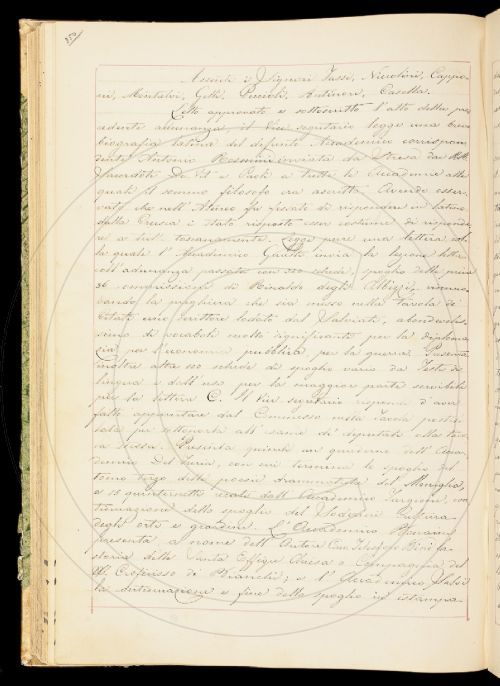 350
Assenti i Signori Tassi, Niccolini, Cappo-
ni, Montalvi, Gelli, Puccioli, Antinori, Casella.
Letto approvato e sottoscritto l'atto della pre
cedente adunanza, il Vice segretario legge una breve
biografia latina del defunto Accademico corrispon
dente Antonio Rosmini inviata da Stresa dai
Sacerdoti De Vit e Paoli a tutte le Accademie alle
quali il sommo filosofo era ascritto. Avendo osser-
vato, che nell'Ateneo fu fissato di rispondere in latino
dalla Crusca è stato risposto esser costume di risponde
re a tutti toscanamente. Legge pure una lettera col
la quale l'Accademico invia la lezione letta
nell'adunanza passata con 520 schede, spoglio delle prime
36 commissioni di Rinaldo degli Albizzi, rinno-
vando la preghiera che sia messo nella tavola de'
citati uno scrittore lodato dal Salviati, abondevolis-
simo di vocaboli molto significanti per la diploma
zia per l'economia pubblica, per la guerra. Presenta
inoltre altre 100 schede di spoglio vario da Testi di
lingua e dall'uso per la maggior parte servibili
per la lettera C. Il Vice segretario risponde d'aver
fatto appuntare dal Commesso nella Tavola postil-
lata per sottoporla all'esame de' deputati alla tavo
la stessa. Presenta quindi un quaderno dell'Acca-
demico Del Furia, con cui termina lo spoglio del
tomo terzo delle poesie drammatiche del Moniglia,
e 15 quinternetti recati dall'Accademico Targioni, con
tinuazione dello spoglio del Soderini Coltura
degli orti e giardini. L'Accademico
presenta a nome dell'Autore Can. Telesforo Bini la
storia della Santa Effigie Chiesa e Compagnia del
SS. Crocifisso di Bianchi; e l'Accademico
la continuazione e fine dello spoglio in istampa